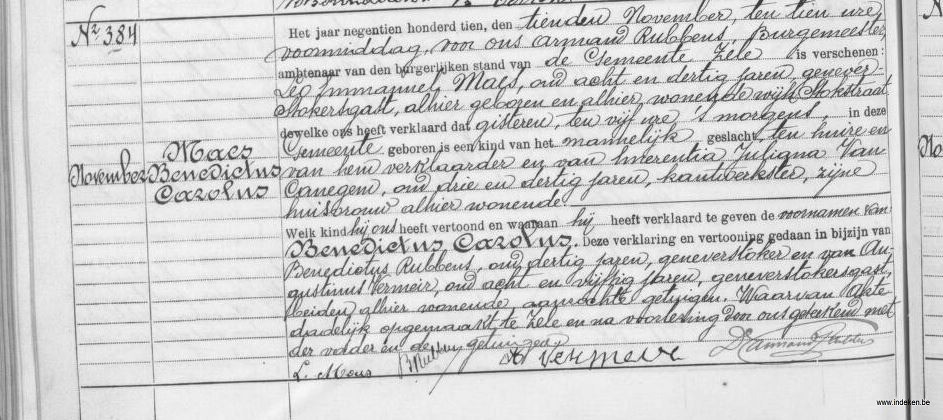 Nr 384
Maes
November Benedictus
Carolus
Het jaar negentien honderd tien, den tienden November, ten tien ure
voormiddag, voor ons Armand Rubbens, Burgemeester,
ambtenaar van den burgerlijken stand van de Gemeente Zele is verschenen:
Leo Immanuel Maes, oud acht en dertig jaren, genever-
stokersgast, alhier geboren en alhier, wonende wijk Stokstraat
dewelke ons heeft verklaard dat gisteren, ten vijf ure 's morgens, in deze
Gemeente geboren is een kind van het mannelijk geslacht, ten huize en
van hem verklaarder en van Juliana Van
Canegem, oud drie en dertig jaren, kantwerkster, zijne
huisvrouw alhier wonende.
Welk kind hij ons heeft vertoond en waaraan hij heeft verklaard te geven de voornamen van
Benedictus Carolus. Deze verklaring en vertooning gedaan in bijzijn van
Benedictus Rubbens, oud dertig jaren, geneverstoker en van Au-
gustinus Vermeir, oud acht en vijftig jaren, geneverstokersgast,
beiden alhier wonende aanzochte getuigen. Waarvan Akte
dadelijk opgemaakt te Zele en na voorlezing door ons geteekend met
der vader en de getuigen
L. Maes B Rubbens Vermeire Armand Rubbens
No
www.indeken.be